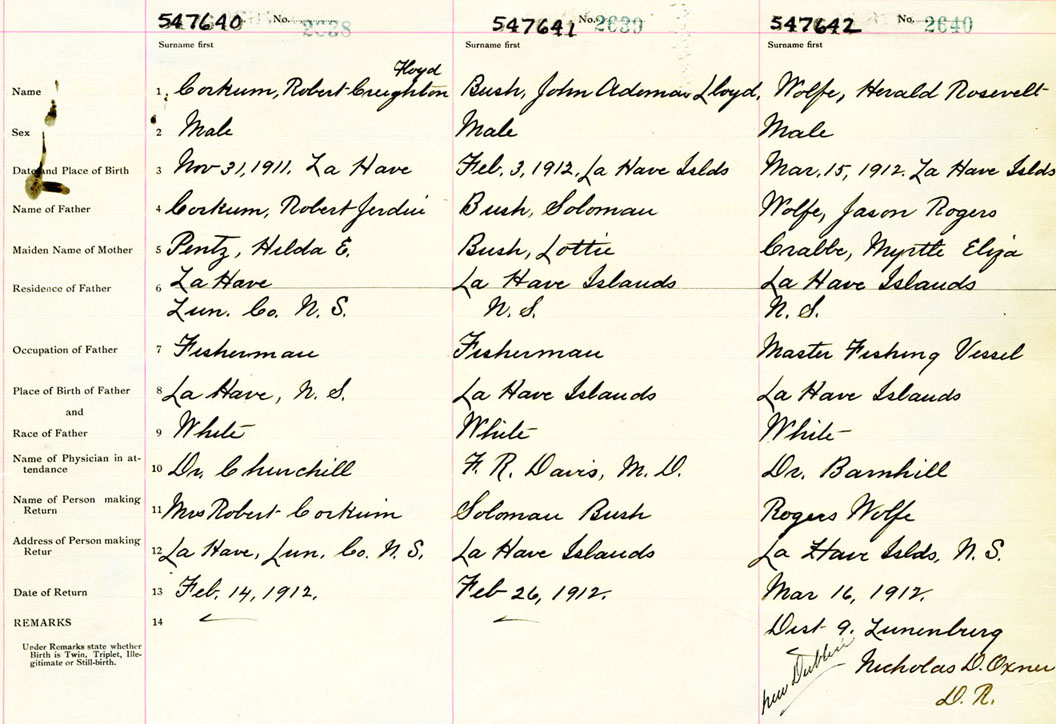 547640 No. 2638 547641 No. 2639 547642 No. 2640
Surname first Surname first Surname first
Floyd
Name 1 Corkum, Robert Creighton Bush, John Ademar Lloyd, Wolfe, Herald Rosevelt
Sex 2 Male Male Male
Date and Place of Birth 3 Nov 31, 1911. La Have Feb. 3, 1912, La Have Islds Mar. 15, 1912. La Have Islds
Name of Father 4 Corkum, Robert Jerdin Bush, Soloman Wolfe, Jason Rogers
Maiden Name of Mother 5 Pentz, Hilda E. Bush, Lottie Crabbe, Myrtle Eliza
Residence of Father 6 La Have La Have Islands La Have Islands
Lun. Co. N. S. N. S. N. S.
Occupation of Father 7 Fisherman Fisherman Master Fishing Vessel
Place of Birth of Father 8 La Have, N. S. La Have Islands La Have Islands
and
Race of Father 9 White White White
Name of Physician in at-
tendance 10 Dr. Churchill F. R. Davis, M. D. Dr. Barnhill
Name of Person making
Return 11 Mrs Robert Corkum Soloman Bush Rogers Wolfe
Address of Person making
Retur 12 La Have, Lun. Co. N. S. La Have Islands La Have Islds, N. S.
Date of Return 13 Feb. 14, 1912. Feb 26, 1912. Mar 16, 1912.
REMARKS 14 Dist 9. Lunenburg
Under Remarks state whether
Birth is Twin, Triplet, Ille-
gitimate or Still-birth.
New Dublin Nicholas D. Oxner
D. R.